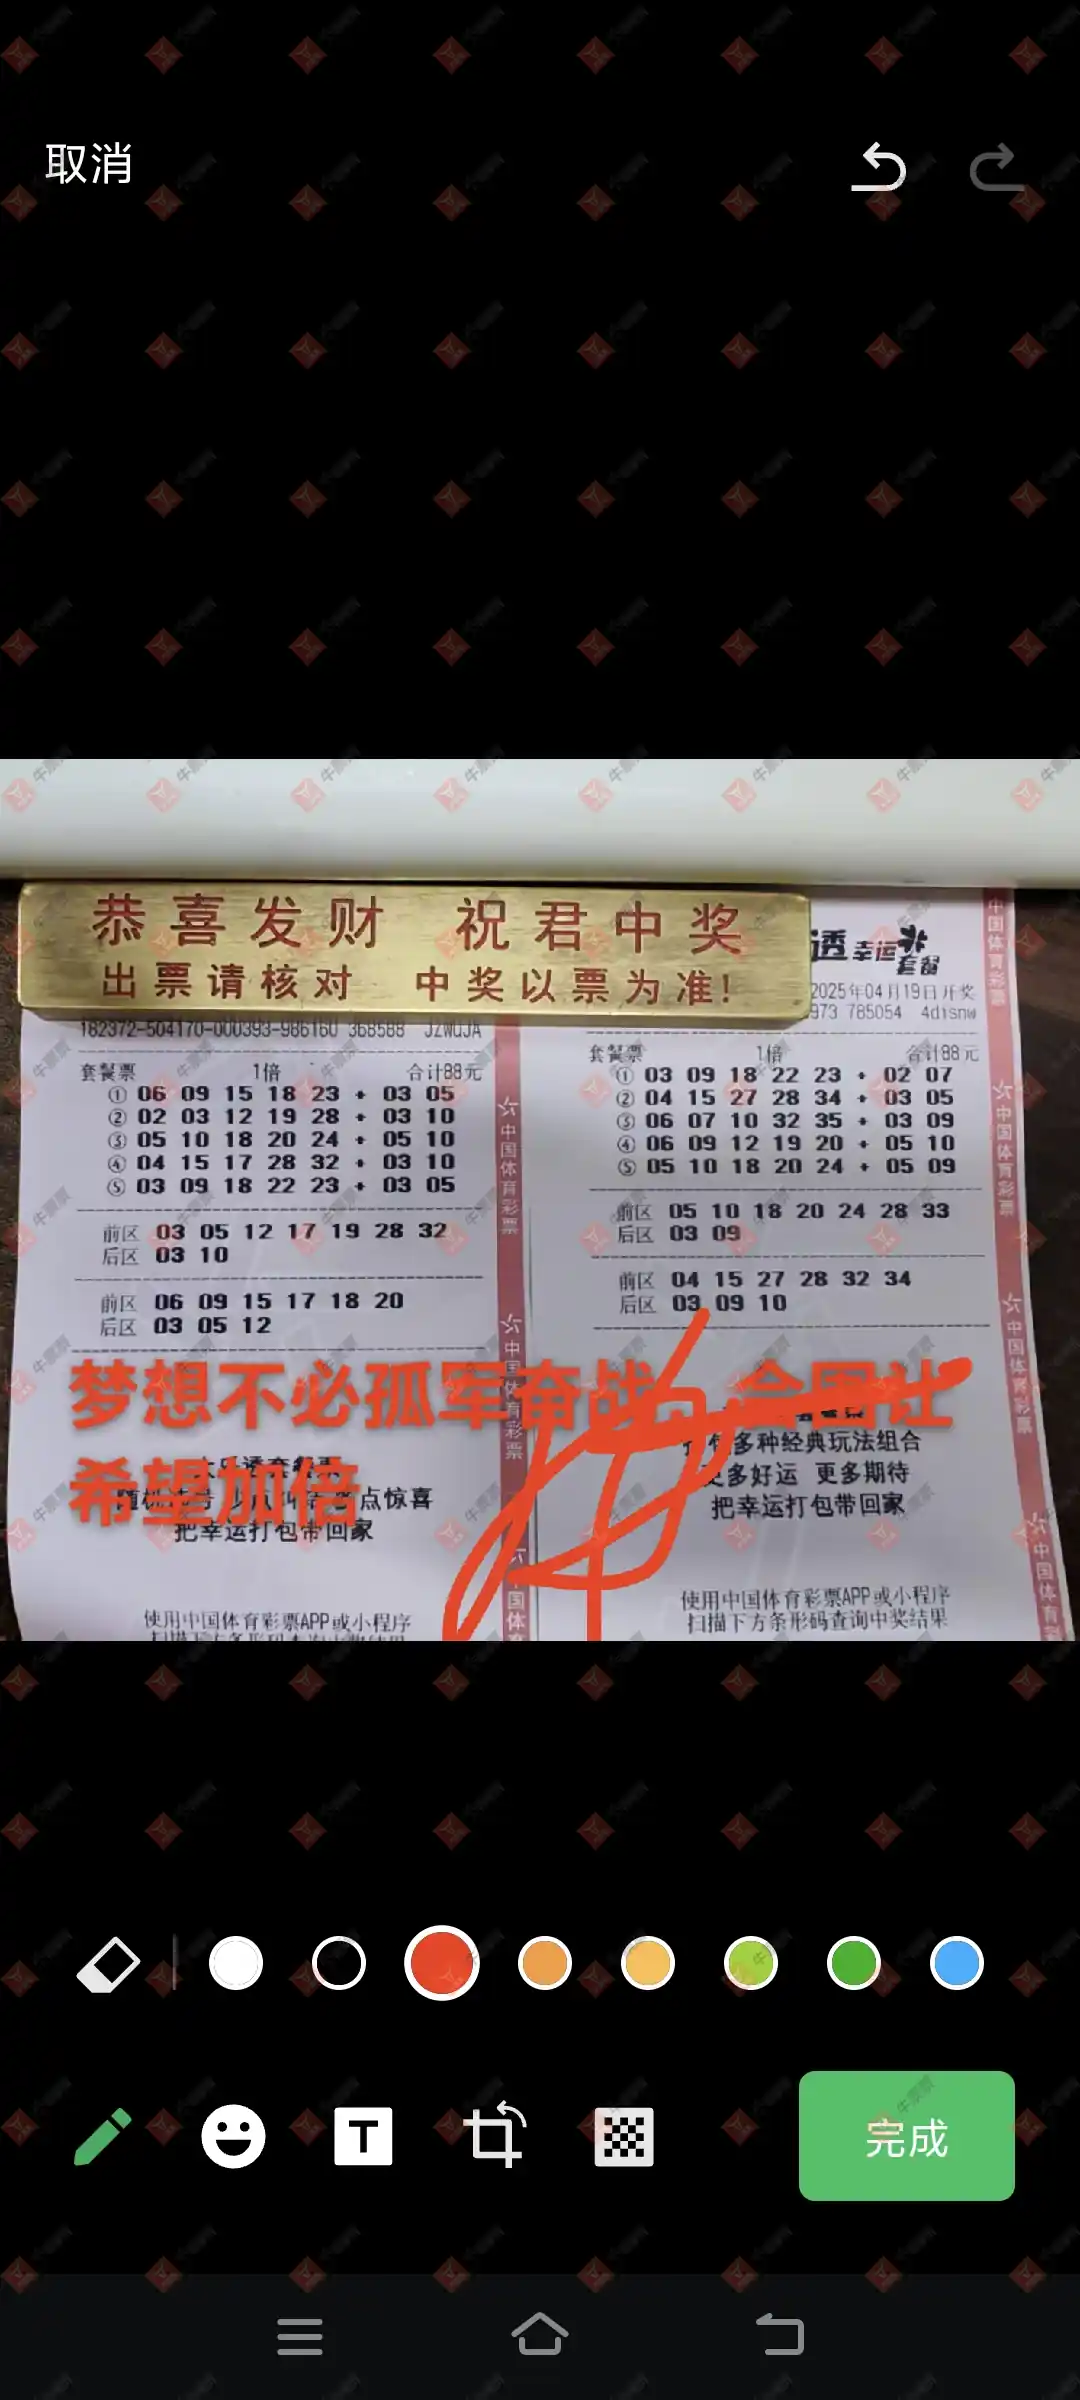 取消
恭喜发财 祝君中奖
出票请核对 中奖以票为准!
透 幸运套餐
2025年04月19日开奖
973 785054 4disnw
182372-504170-000393-986160 368588 JZWQJA
套餐票 1倍 合计88元
① 06 09 15 18 23 + 03 05
② 02 03 12 19 28 + 03 10
③ 05 10 18 20 24 + 05 10
④ 04 15 17 28 32 + 03 10
⑤ 03 09 18 22 23 + 03 05
前区 03 05 12 17 19 28 32
后区 03 10
前区 06 09 15 17 18 20
后区 03 05 12
套餐票 1倍 合计88元
① 03 09 18 22 23 + 02 07
② 04 15 27 28 34 + 03 05
③ 06 07 10 32 35 + 03 09
④ 06 09 12 19 20 + 05 10
⑤ 05 10 18 20 24 + 05 09
前区 05 10 18 20 24 28 33
后区 03 09
前区 04 15 27 28 32 34
后区 03 09 10
梦想不必孤军奋战 合买让
希望加倍
大乐透套餐票
点惊喜
把幸运打包带回家
使用中国体育彩票APP或小程序
多种经典玩法组合
更多好运 更多期待
把幸运打包带回家
使用中国体育彩票APP或小程序
扫描下方条形码查询中奖结果
中国体育彩票
中国体育彩票
中国体育彩票
牛票票
完成